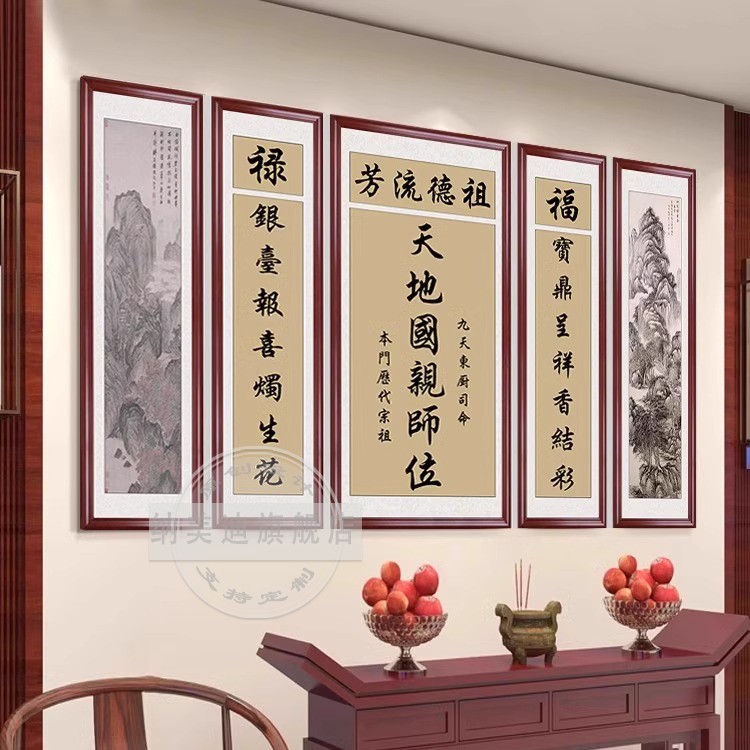 祖德流芳
天地國親師位
九天東厨司命
本門歷代宗祖
福
寶鼎呈祥香結彩
禄
銀臺報喜燭生花
纳美迪旗舰店
支持定制